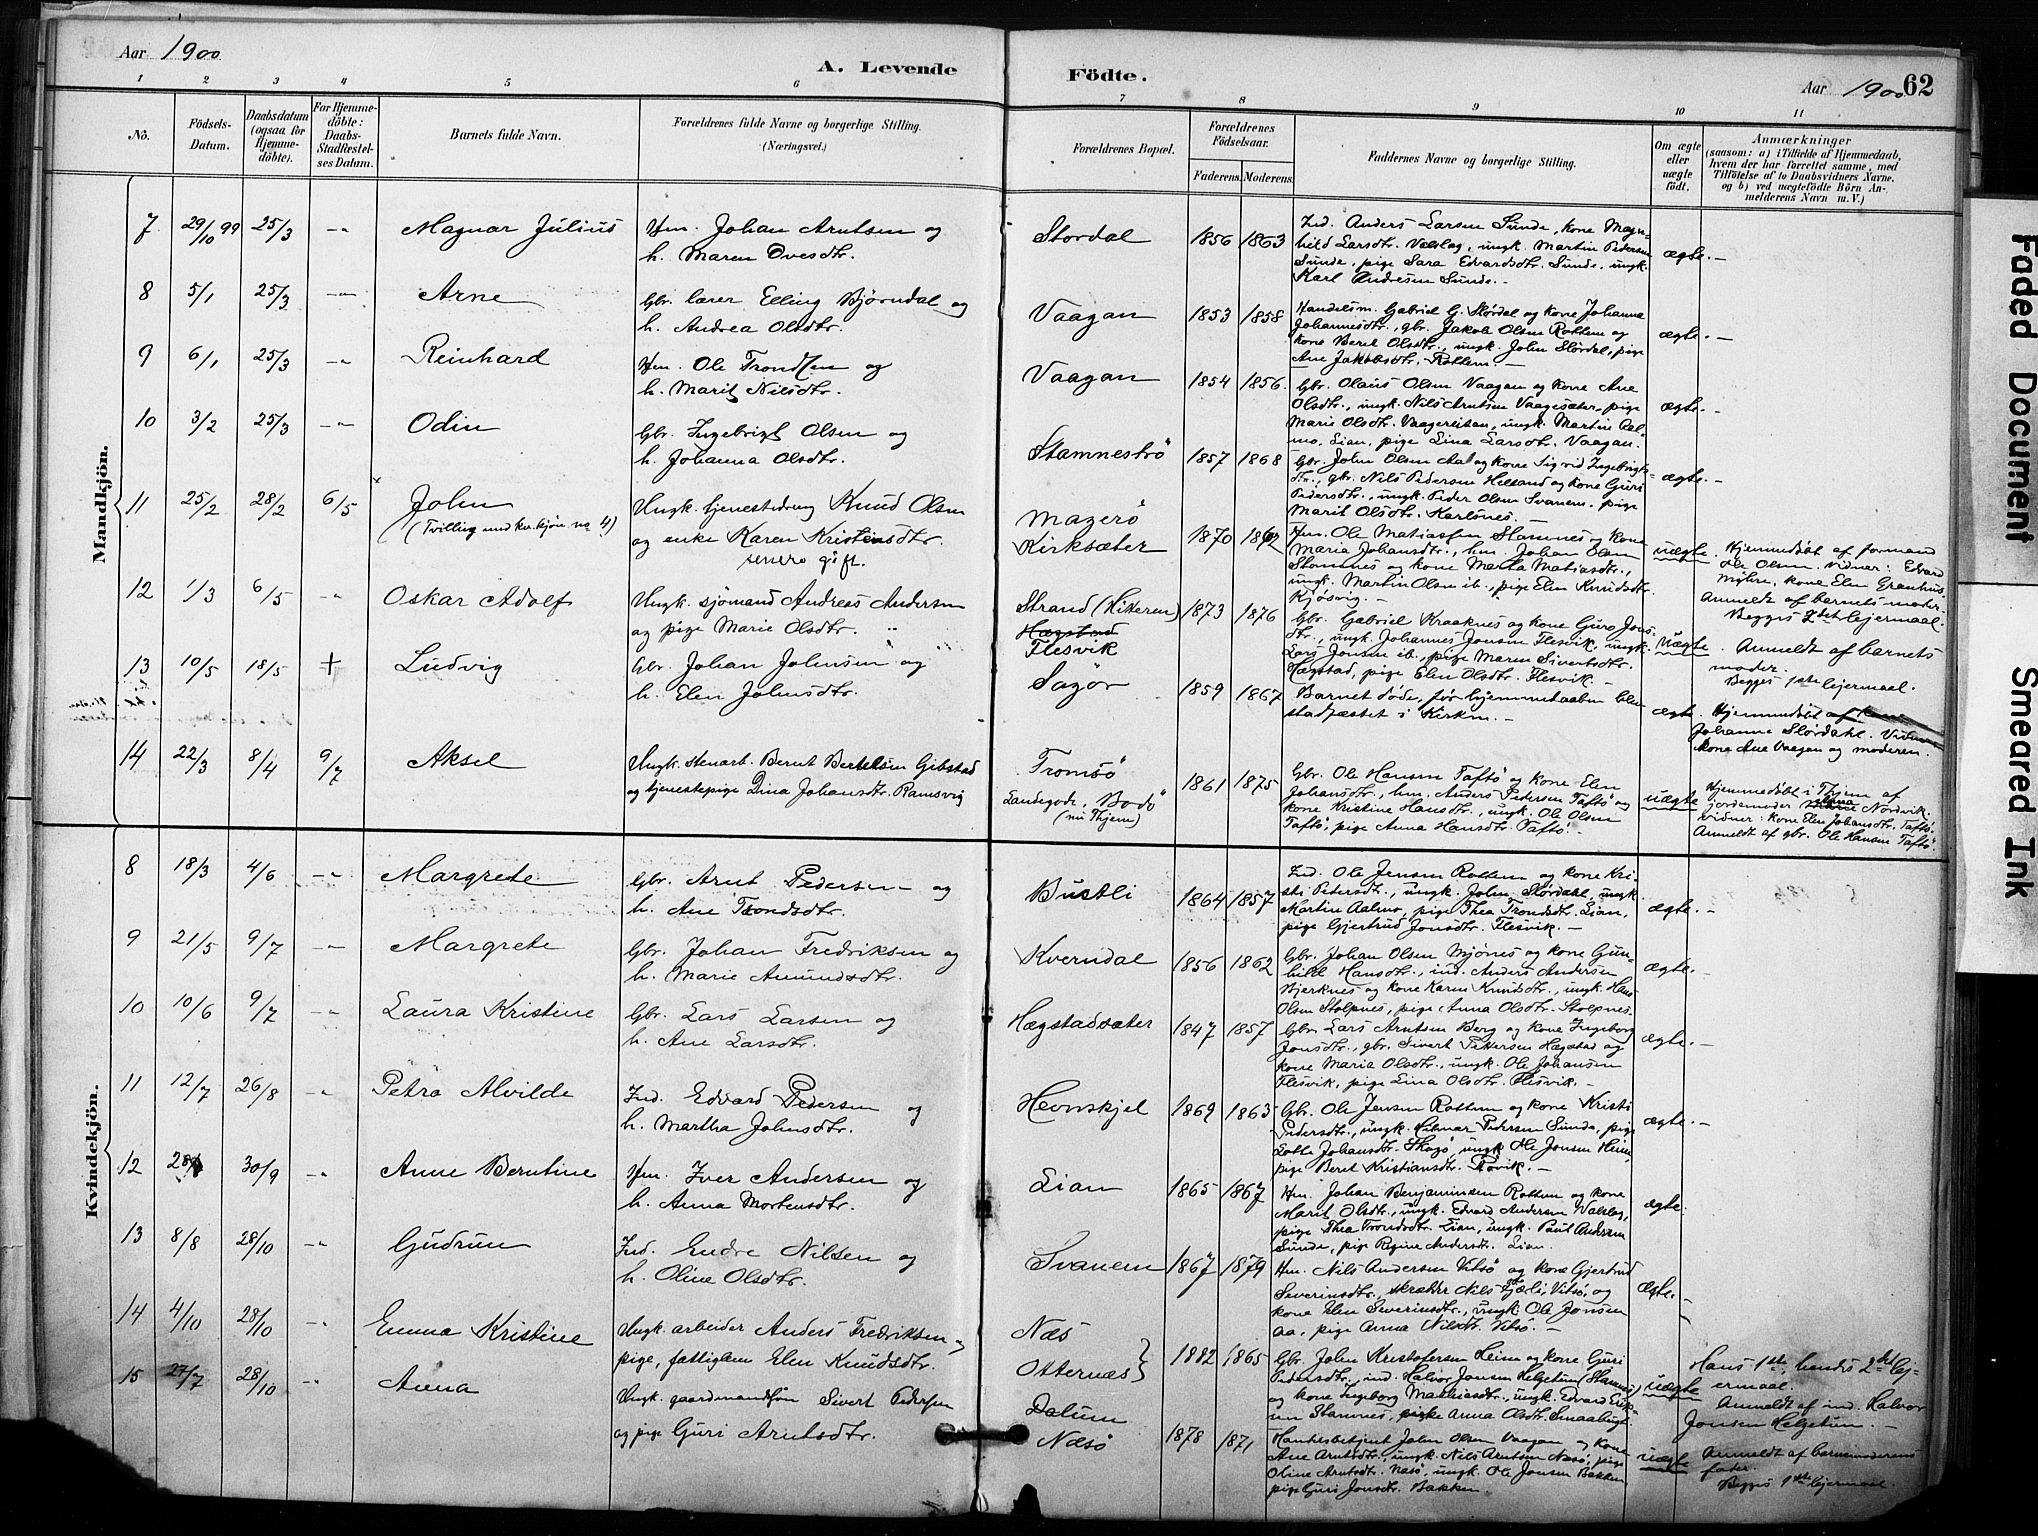 Aar 1900
A. Levende
Födte.
Aar 1900 62
1 2 3 4 5 6 7 8 9 10 11
Nō.
Födsels-Datum.
Daabsdatum (ogsaa for Hjemmedöbte).
For Hjemmedöbte: Daabs-Stadfæstelses Datum.
Barnets fulde Navn.
Forældrenes fulde Navne og borgerlige Stilling. (Næringsvei.)
Forældrenes Bopæl.
Forældrenes Födselsaar.
Faderens. Moderens.
Faddernes Navne og borgerlige Stilling.
Om ægte eller uægte födt.
Anmærkninger
(saasom: a) i Tilfælde af Hjemmedaab, hvem der har forrettet samme, med Tilföielse af to Daabsvidners Navne, og b) ved uægtefödte Börn Anmelderens Navn m. V.)
Mandkjön.
7 29/10 99 25/3 -"- Magnar Julius Hm. Johan Arntsen og
h. Maren Ovesdtr.
Stordal 1856 1863
Ind. Anders Larsen Sunde, kone Magn-
hild Larsdtr. Valslag, ungk. Martin Pedersen
Sunde, pige Sara Edvardsdtr. Sunde, ungk.
Karl Andresen Sunde.-
ægte.-
8 5/1 25/3 -"- Arne Gbr. lærer Elling Bjørndal og
h. Andrea Olsdtr.
Vaagan 1853 1858
Handelsm. Gabriel G. Slørdal og kone Johanna
Johannesdtr., gbr. Jakob Olsen Rottem og
kone Beret Olsdtr., ungk. John Slørdal, pige
Ane Jakobsdtr. Rottem.-
ægte.-
9 6/1 25/3 -"- Reinhard Hm. Ole Trondsen og
h. Marit Nilsdtr.
Vaagan 1854 1856.
Gbr. Olaus Olsen Vaagan og kone Ane
Olsdtr., ungk. Nils Arntsen Vaagesæter, pige
Marie Olsdtr. Vaagerleitan, ungk. Martin Aal-
mo, Lian, pige Lina Larsdtr. Vaagan.
ægte.-
10 3/2 25/3 -"- Odin Gbr. Ingebrigt Olsen og
h. Johanna Olsdtr.
Stamnestrø 1857 1868
Gbr. John Olsen Aal og kone Sigrid Ingebrigts-
dtr., gbr. Nils Pedersen Helland og kone Guri
Pedersdtr., ungk. Peder Olsen Svanem, pige
Marit Olsdtr. Karlsnes.-
ægte.-
11 25/2 28/2 6/5 John
(Tvilling med kv.kjøn no 4)
Ungk. tjenestedreng Knud Olsen
og enke Karen Kristensdtr.
senere gift.
Magerø
Kirksæter 1870 1862
Hm. Ole Matiassen Stamnes og kone
Maria Johansdtr., hm. Johan Olsen
Stamnes og kone Marta Matiasdtr.,
ungk. Martin Olsen ib., pige Elen Knudsdtr.
Kjøsvig.-
uægte. Hjemmedøbt af formand
Ole Olsen. Vidner: Edvard
Myhre, kone Elen Granhus.
Anmeldt af barnets moder.
Begges 2det leiermaal.
12 1/3 6/5 -"- Oskar Adolf Ungk. sjømand Andreas Andersen
og pige Marie Olsdtr.
Strand (Hitteren) 1873 1876
Hægstad
Flesvik
Gbr. Gabriel Kraaknes og kone Guro Jons-
dtr., ungk. Johannes Jonsen Flesvik, ungk.
Lars Jonsen ib., pige Maren Sivertsdtr.
Hægstad, pige Elen Olsdtr. Flesvik.-
uægte. Anmeldt af barnets
moder.
Begges 1ste leiermaal.
13 10/5 18/5 + Ludvig Gbr. Johan Johnsen og
h. Elen Johnsdtr.
Sagør 1859 1867
Barnet døde, før hjemmedaaben blev
stadfæstet i Kirken.-
ægte. Hjemmedøbt af
Johanna Slørdahl. Vidner:
kone Ane Vaagan og moderen.
14 22/3 8/4 9/7 Aksel Ungk. stenarb. Bernt Bertelsen Gibstad
og tjenestepige Dina Johansdtr. Ramsvig
Tromsø
Landegode, Bodø
(nu Thjem)
1861 1875
Gbr. Ole Hansen Taftø og kone Elen
Johansdtr., hm. Anders Pedersen Taftø og
kone Kristine Hansdtr., ungk. Ole Olsen
Taftø, pige Anna Hansdtr. Taftø.
uægte Hjemmedøbt i Thjem af
jordemoder Nordvik.
Vidner: kone Elen Johansdtr. Taftø.
Anmeldt af gbr. Ole Hansen Taftø.
Kvindekjön.
8 18/3 4/6 -"- Margrete Gbr. Arnt Pedersen og
h. Ane Trondsdtr.
Bustli 1864 1857
Ind. Ole Jensen Rottem og kone Kri-
sti Pedersdtr., ungk. John Slørdahl, ungk.
Martin Aalmo, pige Thea Trondsdtr. Lian,
pige Gjertrud Jonsdtr. Flesvik.-
ægte.-
9 21/5 9/7 -"- Margrete Gbr. Johan Fredriksen og
h. Marie Amundsdtr.
Kverndal 1856 1862
Gbr. Johan Olsen Mjønes og kone Gun-
hild Hansdtr., ind. Anders Andersen
Bjerknes og kone Karen Knudsdtr., ungk. Hans
Olsen Stolpnes, pige Anna Olsdtr. Stolpnes.
ægte.-
10 10/6 9/7 -"- Laura Kristine Gbr. Lars Larsen og
h. Ane Larsdtr.
Hægstadsæter 1847 1857
Gbr. Lars Arntsen Berg og kone Ingeborg
Jonsdtr., gbr. Sivert Pettersen Hægstad og
kone Maria Olsdtr., ungk. Ole Johansen
Flesvik, pige Lina Olsdtr. Flesvik.-
ægte.-
11 12/7 26/8 -"- Petra Alvilde Ind. Edvard Pedersen og
h. Martha Johnsdtr.
Hevnskjel 1869 1863
Gbr. Ole Jensen Rottem og kone Kristi
Pedersdtr., ungk. Hilmar Pedersen Sunde, pige
Lotte Johansdtr. Skogø, ungk. Ole Jonsen Heim,
pige Beret Kristiansdtr. Rovik.-
ægte.-
12 30/9 -"- Anne Berntine Hm. Iver Andersen og
h. Anna Mortensdtr.
Lian 1865 1867
Hm. Johan Benjaminsen Rottem og kone
Marit Olsdtr., ungk. Edvard Andersen Valslag,
pige Thea Trondsdtr. Lian, ungk. Paul Andersen
Sunde, pige Regine Andersdtr. Lian.
ægte.
13 8/8 28/10 -"- Gudrun Ind. Endre Nilsen og
h. Oline Olsdtr.
Svanem 1867 1879
Hm. Nils Andersen Vitsø og kone Gjertrud
Severinsdtr., skrædder Nils Fjærli, Vitsø, og
kone Elen Severinsdtr., ungk. Ole Jonsen
Aa, pige Anna Nilsdtr. Vitsø.-
ægte.-
14 4/10 28/10 -"- Emma Kristine Ungk. arbeider Anders Fredriksen og
pige, fattiglem Elen Knudsdtr.
Næs
Otternæs 1882 1865
Gbr. John Kristofersen Heim og kone Guri
Pedersdtr., ind. Halvor Jonsen Helgetun (Stamnes)
og kone Ingeborg Mathiasdtr., ungk. Edvard Erik-
sen Stamnes, pige Anna Olsdtr. Smaalaugt.
uægte Hans 1ste, hendes 2det lei-
ermaal.
Anmeldt af ind. Halvor
Jonsen Helgetun.
15 27/7 28/10 -"- Anna Ungk. gaardmandssøn Sivert Pedersen
og pige Guri Arntsdtr.
Dalum
Næsø 1878 1871
Handelsbetjent John Olsen Vaagan og kone
Ane Arntsdtr., ungk. Nils Arntsen Næsø, pige
Oline Arntsdtr. Næsø, ungk. Ole Jonsen Bakken,
pige Guri Jonsdtr. Bakken.
uægte Anmeldt af barnemoderens
fader.
Begges 1ste leiermaal.
Faded Document
Smeared Ink